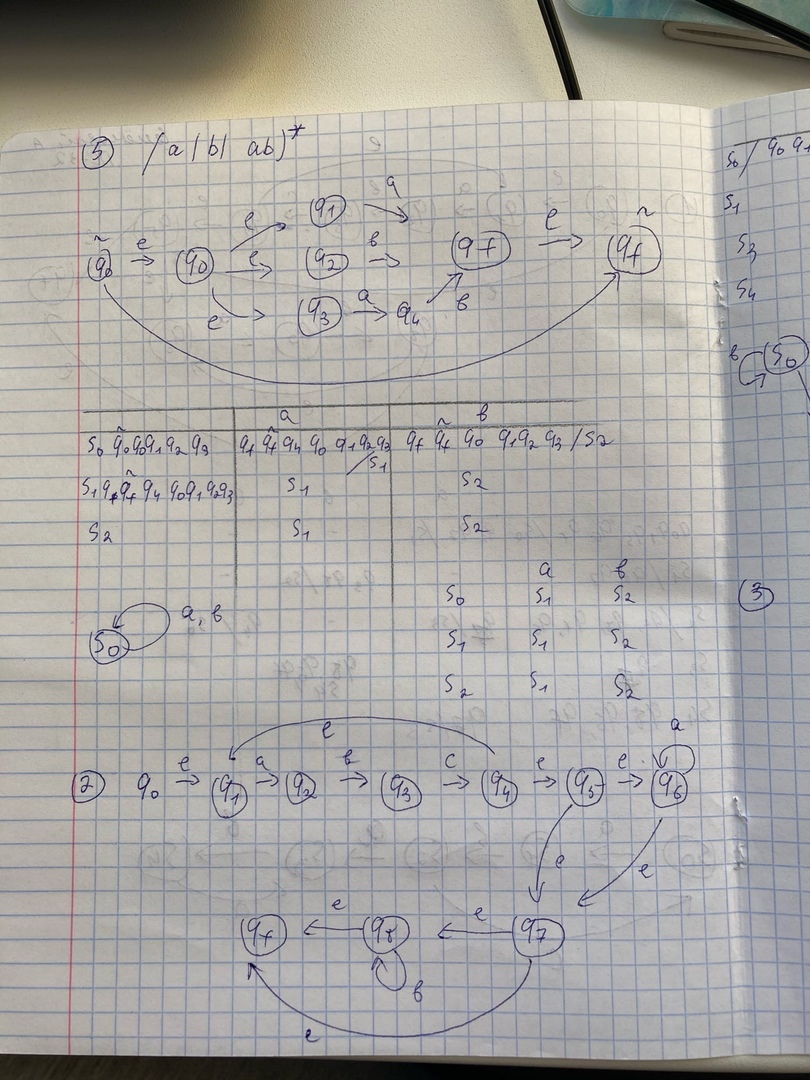 ⑤ (a | b | ab)*
q̃0 e q0 e q1 a
e q2 в qf e q̃f
e q3 a q4 в
a в
S0 q̃0 q0 q1 q2 q3 qf q̃f q4 q0 q1 q2 q3 / S1 qf q̃f q0 q1 q2 q3 / S2
S1 qf q̃f q4 q0 q1 q2 q3 S1 S2
S2 S1 S2
a в
S0 S1 S2
S1 S1 S2
S2 S1 S2
S0 a, в
② q0 e q1 a q2 в q3 c q4 e q5 e q6 a
e
e e
qf e q8 e q7
в
e
S0 / q0 q1
S1
S3
S4
в S0
③